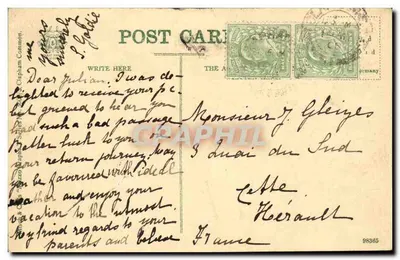 me
yours
sincerely
S. Goldie
POST CARD
WRITE HERE
THE
Clapham Common.
Dear Julian. I was de-
lighted to receive your p.c.
but grieved to hear you
had such a bad passage
Better luck to you on
your return journey. May
you be favoured with ideal
weather and enjoy your
vacation to the utmost.
My kind regards to your
parents and
Monsieur J. Gleizes
3 Quai du Sud
Cette
Hérault
France
98365
DELCAMPE